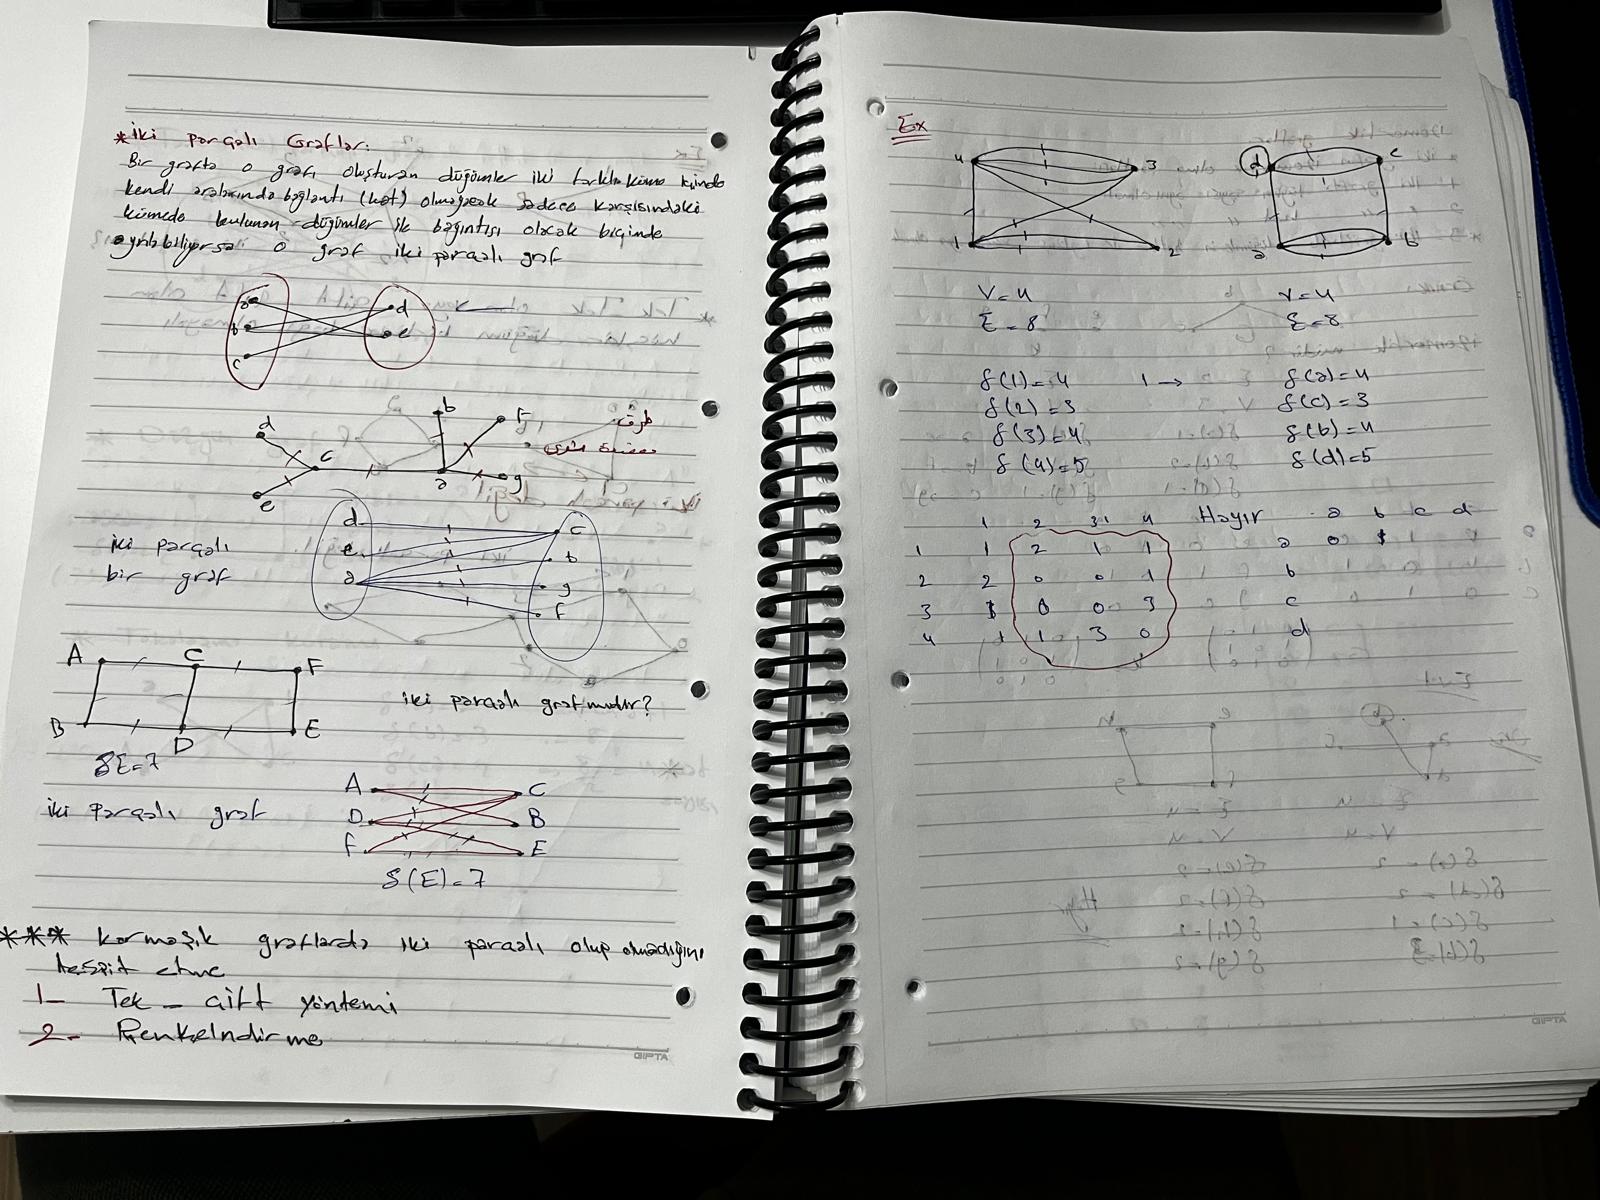 * İki parçalı Graflar:
Bir grafta o grafı oluşturan düğümler iki farklı küme içinde
kendi aralarında bağlantı (hat) olmayacak sadece karşısındaki
kümede bulunan düğümler ile bağıntısı olacak biçimde
ayrılabiliyorsa o graf iki parçalı graf
a d
b e
c
d b f
c a g
e
طرف
d c
e b
a g
f
iki parçalı
bir graf
A C F
B D E
iki parçalı grafmıdır?
δE=7
A C
D B
f E
iki parçalı graf
δ(E)=7
*** Karmaşık graflarda iki parçalı olup olmadığını
tespit etme
1- Tek - çift yöntemi
2- Renkelndirme
GIPTA
Ex
4 3
1 2
d c
a b
V=4 V=4
E=8 E=8
δ(1)=4 1 → δ(a)=4
δ(2)=3 δ(c)=3
δ(3)=4 δ(b)=4
δ(4)=5 δ(d)=5
1 2 3 4 Hayır a b c d
1 1 2 1 1 a 0 1
2 2 0 0 1 b
3 1 0 0 3 c
4 1 1 3 0 d
GIPTA